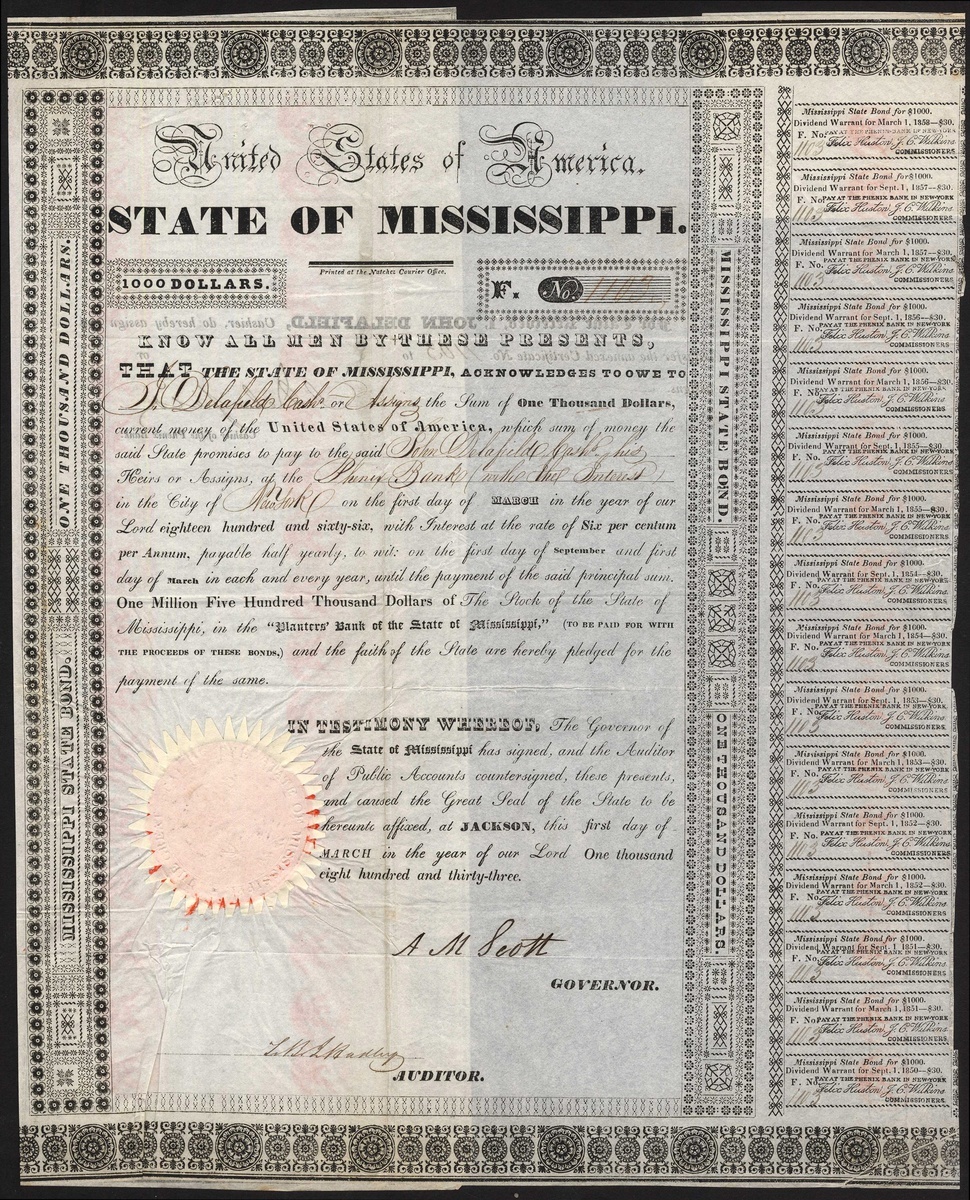 United States of America.
STATE OF MISSISSIPPI.
Printed at the Natchez Courier Office.
1000 DOLLARS.
F. No. 1103
KNOW ALL MEN BY THESE PRESENTS,
THAT THE STATE OF MISSISSIPPI, ACKNOWLEDGES TO OWE TO
J. Delafield Cashr. or Assigns, the Sum of One Thousand Dollars,
current money of the United States of America, which sum of money the
said State promises to pay to the said John Delafield Cashr. his
Heirs or Assigns, at the Phenix Bank with the Interest
in the City of New York on the first day of MARCH in the year of our
Lord eighteen hundred and sixty-six, with Interest at the rate of Six per centum
per Annum, payable half yearly, to wit: on the first day of September and first
day of March in each and every year, until the payment of the said principal sum.
One Million Five Hundred Thousand Dollars of The Stock of the State of
Mississippi, in the "Planters' Bank of the State of Mississippi," (TO BE PAID FOR WITH
THE PROCEEDS OF THESE BONDS,) and the faith of the State are hereby pledged for the
payment of the same.
IN TESTIMONY WHEREOF, The Governor of
the State of Mississippi has signed, and the Auditor
of Public Accounts countersigned, these presents,
and caused the Great Seal of the State to be
hereunto affixed, at JACKSON, this first day of
MARCH in the year of our Lord One thousand
eight hundred and thirty-three.
A M Scott
GOVERNOR.
AUDITOR.
ONE THOUSAND DOLLARS.
MISSISSIPPI STATE BOND.
MISSISSIPPI STATE BOND.
ONE THOUSAND DOLLARS.
Mississippi State Bond for $1000.
Dividend Warrant for March 1, 1858—$30.
F. No. PAY AT THE PHENIX BANK IN NEW-YORK
1103 Felix Huston, J. C. Wilkins
COMMISSIONERS
Mississippi State Bond for $1000.
Dividend Warrant for Sept. 1, 1857—$30.
F. No. PAY AT THE PHENIX BANK IN NEW-YORK
1103 Felix Huston, J. C. Wilkins
COMMISSIONERS
Mississippi State Bond for $1000.
Dividend Warrant for March 1, 1857—$30.
F. No. PAY AT THE PHENIX BANK IN NEW-YORK
1103 Felix Huston, J. C. Wilkins
COMMISSIONERS
Mississippi State Bond for $1000.
Dividend Warrant for Sept. 1, 1856—$30.
F. No. PAY AT THE PHENIX BANK IN NEW-YORK
1103 Felix Huston, J. C. Wilkins
COMMISSIONERS
Mississippi State Bond for $1000.
Dividend Warrant for March 1, 1856—$30.
F. No. PAY AT THE PHENIX BANK IN NEW-YORK
1103 Felix Huston, J. C. Wilkins
COMMISSIONERS
Mississippi State Bond for $1000.
Dividend Warrant for Sept. 1, 1855—$30.
F. No. PAY AT THE PHENIX BANK IN NEW-YORK
1103 Felix Huston, J. C. Wilkins
COMMISSIONERS
Mississippi State Bond for $1000.
Dividend Warrant for March 1, 1855—$30.
F. No. PAY AT THE PHENIX BANK IN NEW-YORK
1103 Felix Huston, J. C. Wilkins
COMMISSIONERS
Mississippi State Bond for $1000.
Dividend Warrant for Sept. 1, 1854—$30.
F. No. PAY AT THE PHENIX BANK IN NEW-YORK
1103 Felix Huston, J. C. Wilkins
COMMISSIONERS
Mississippi State Bond for $1000.
Dividend Warrant for March 1, 1854—$30.
F. No. PAY AT THE PHENIX BANK IN NEW-YORK
1103 Felix Huston, J. C. Wilkins
COMMISSIONERS
Mississippi State Bond for $1000.
Dividend Warrant for Sept. 1, 1853—$30.
F. No. PAY AT THE PHENIX BANK IN NEW-YORK
1103 Felix Huston, J. C. Wilkins
COMMISSIONERS
Mississippi State Bond for $1000.
Dividend Warrant for March 1, 1853—$30.
F. No. PAY AT THE PHENIX BANK IN NEW-YORK
1103 Felix Huston, J. C. Wilkins
COMMISSIONERS
Mississippi State Bond for $1000.
Dividend Warrant for Sept. 1, 1852—$30.
F. No. PAY AT THE PHENIX BANK IN NEW-YORK
1103 Felix Huston, J. C. Wilkins
COMMISSIONERS
Mississippi State Bond for $1000.
Dividend Warrant for March 1, 1852—$30.
F. No. PAY AT THE PHENIX BANK IN NEW-YORK
1103 Felix Huston, J. C. Wilkins
COMMISSIONERS
Mississippi State Bond for $1000.
Dividend Warrant for Sept. 1, 1851—$30.
F. No. PAY AT THE PHENIX BANK IN NEW-YORK
1103 Felix Huston, J. C. Wilkins
COMMISSIONERS
Mississippi State Bond for $1000.
Dividend Warrant for March 1, 1851—$30.
F. No. PAY AT THE PHENIX BANK IN NEW-YORK
1103 Felix Huston, J. C. Wilkins
COMMISSIONERS
Mississippi State Bond for $1000.
Dividend Warrant for Sept. 1, 1850—$30.
F. No. PAY AT THE PHENIX BANK IN NEW-YORK
1103 Felix Huston, J. C. Wilkins
COMMISSIONERS